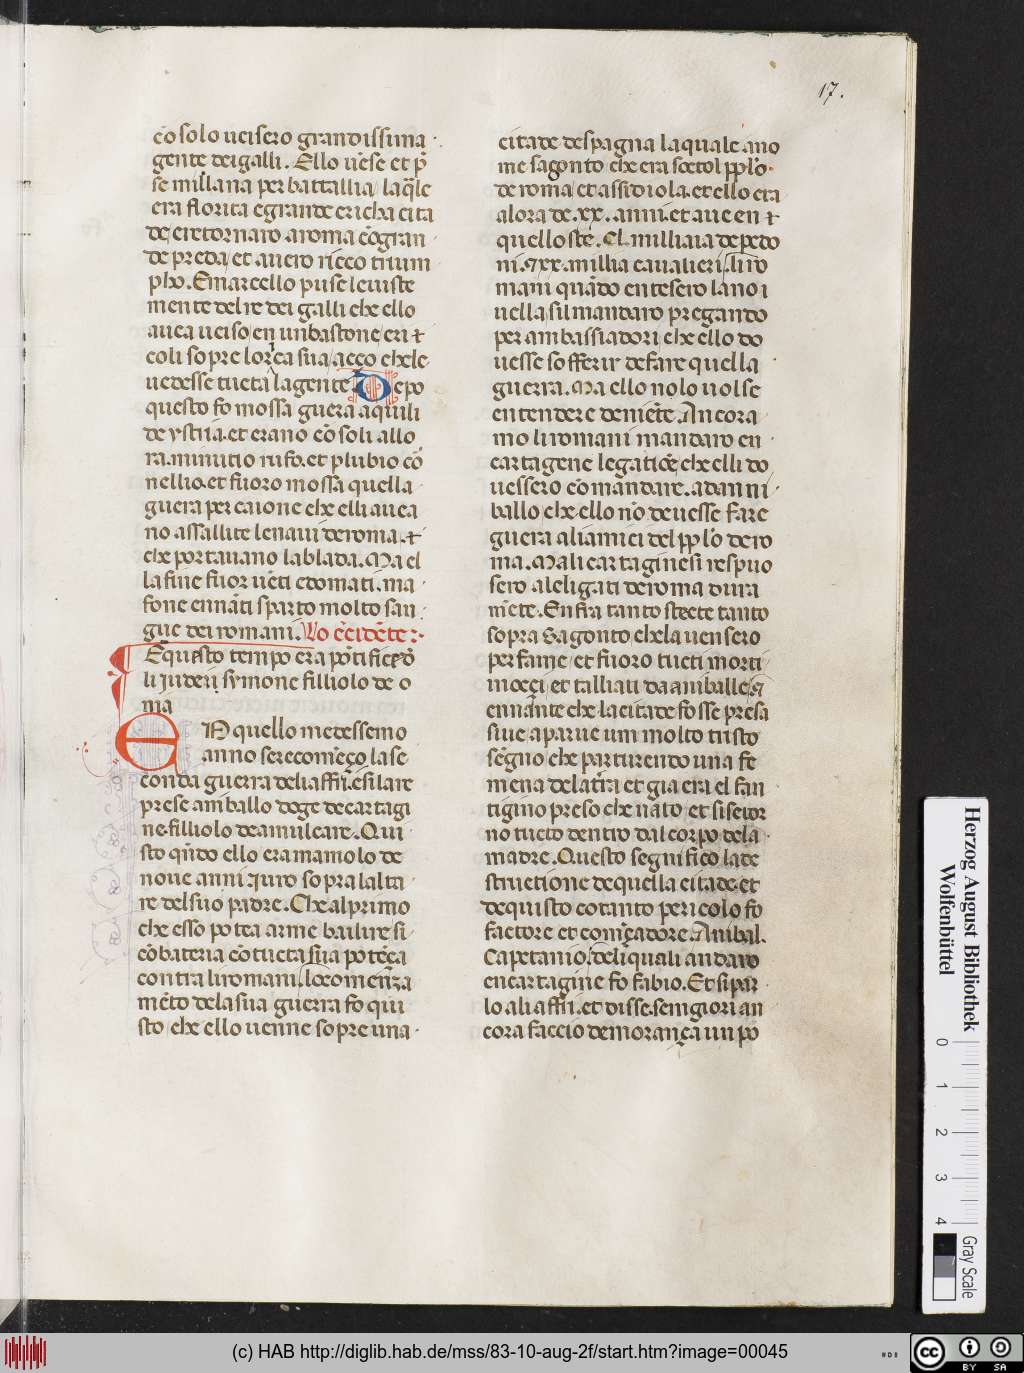 17.
cō solo ueisero grandissima
gente dei galli. Ello uēse et p̄
se millana per battallia laq̄le
era florita e grande e richa cita
de e retornaro a roma cō gran
de preda et auero ricco trium
pho. E marcello puse leuiste
mente del re dei galli che ello
auea ueiso en un bastone en t̄
coli sopre lorīca sua acco chele
uedesse tucta la gente. Depo
questo fo mossa guera aquili
de ystria. et erano cōsoli allo
ra. minutio rufo. et plubio cō
nellio. et fuoro mossa quella
guera per caione che elli auea
no assallite le naui de roma. t̄
che portauano la blada. Ma el
la fine fuor uēti e domati. ma
fone ennāti sparto molto san
gue dei romani. Vo cēidēte:
E questo tempo era pōtifice dō
li iudeu symone filliolo de o
nia
EN quello medessemo
anno se recomēço la se
conda guerra deli affri. e si la re
prese aniballo doge de cartagi
ne. filliolo de amulcare. Qui
sto qn̄do ello era mamolo de
noue anni. Iuro sopra laltа
re del suo padre. Che al primo
che esso potea arme bailire si
cōbateria cō tucta sua potēça
contra li romani. Lo comenza
mēto dela sua guerra fo qui
sto che ello uenne sopre una
citade de spagna la quale a no
me sagonto che era soctol ppl'o
de roma et assidiola. et ello era
alora de .xx. anni. et aue en t̄
quello ste. CL. millaia de pedo
ni. t xx. millia caualieri. li ro
mani quādo entesero la no i
uella sil mandaro pregando
per ambassiadori che ello do
uesse sofferir de fare quella
guerra. Ma ello nolo uolse
entendere de niēte. Ancora
mo li romani mandaro en
cartagene legatiōe che elli do
uessero comandare. ad anni
ballo che ello nō deuesse fare
guera ali amici del ppl'o de ro
ma. Mali cartaginesi respuo
sero ali ligati de roma dura
mēte. En fra tanto stecte tanto
sopra Sagonto che la uensero
per fame et fuoro tucti morti
mocçi et talliati da aniballe. q̄
ennante che la citade fosse presa
siue aparue um molto tristo
segno che parturendo una fe
mena delatra et gia era el fan
tigino preso che nato et si setor
no tucto dentro dal corpo dela
madre. Questo segnifico la de
structione de quella citade. et
de quisto cotanto pericolo fo
factore et comēçadore. Anibal.
Capetanio. deli quali andaro
en cartagine fo fabio. Et si par
lo ali affri. et disse. semgiori an
cora faccio demorança un po
Herzog August Bibliothek
Wolfenbüttel
0 1 2 3 4
Gray Scale
(c) HAB http://diglib.hab.de/mss/83-10-aug-2f/start.htm?image=00045
cc BY SA